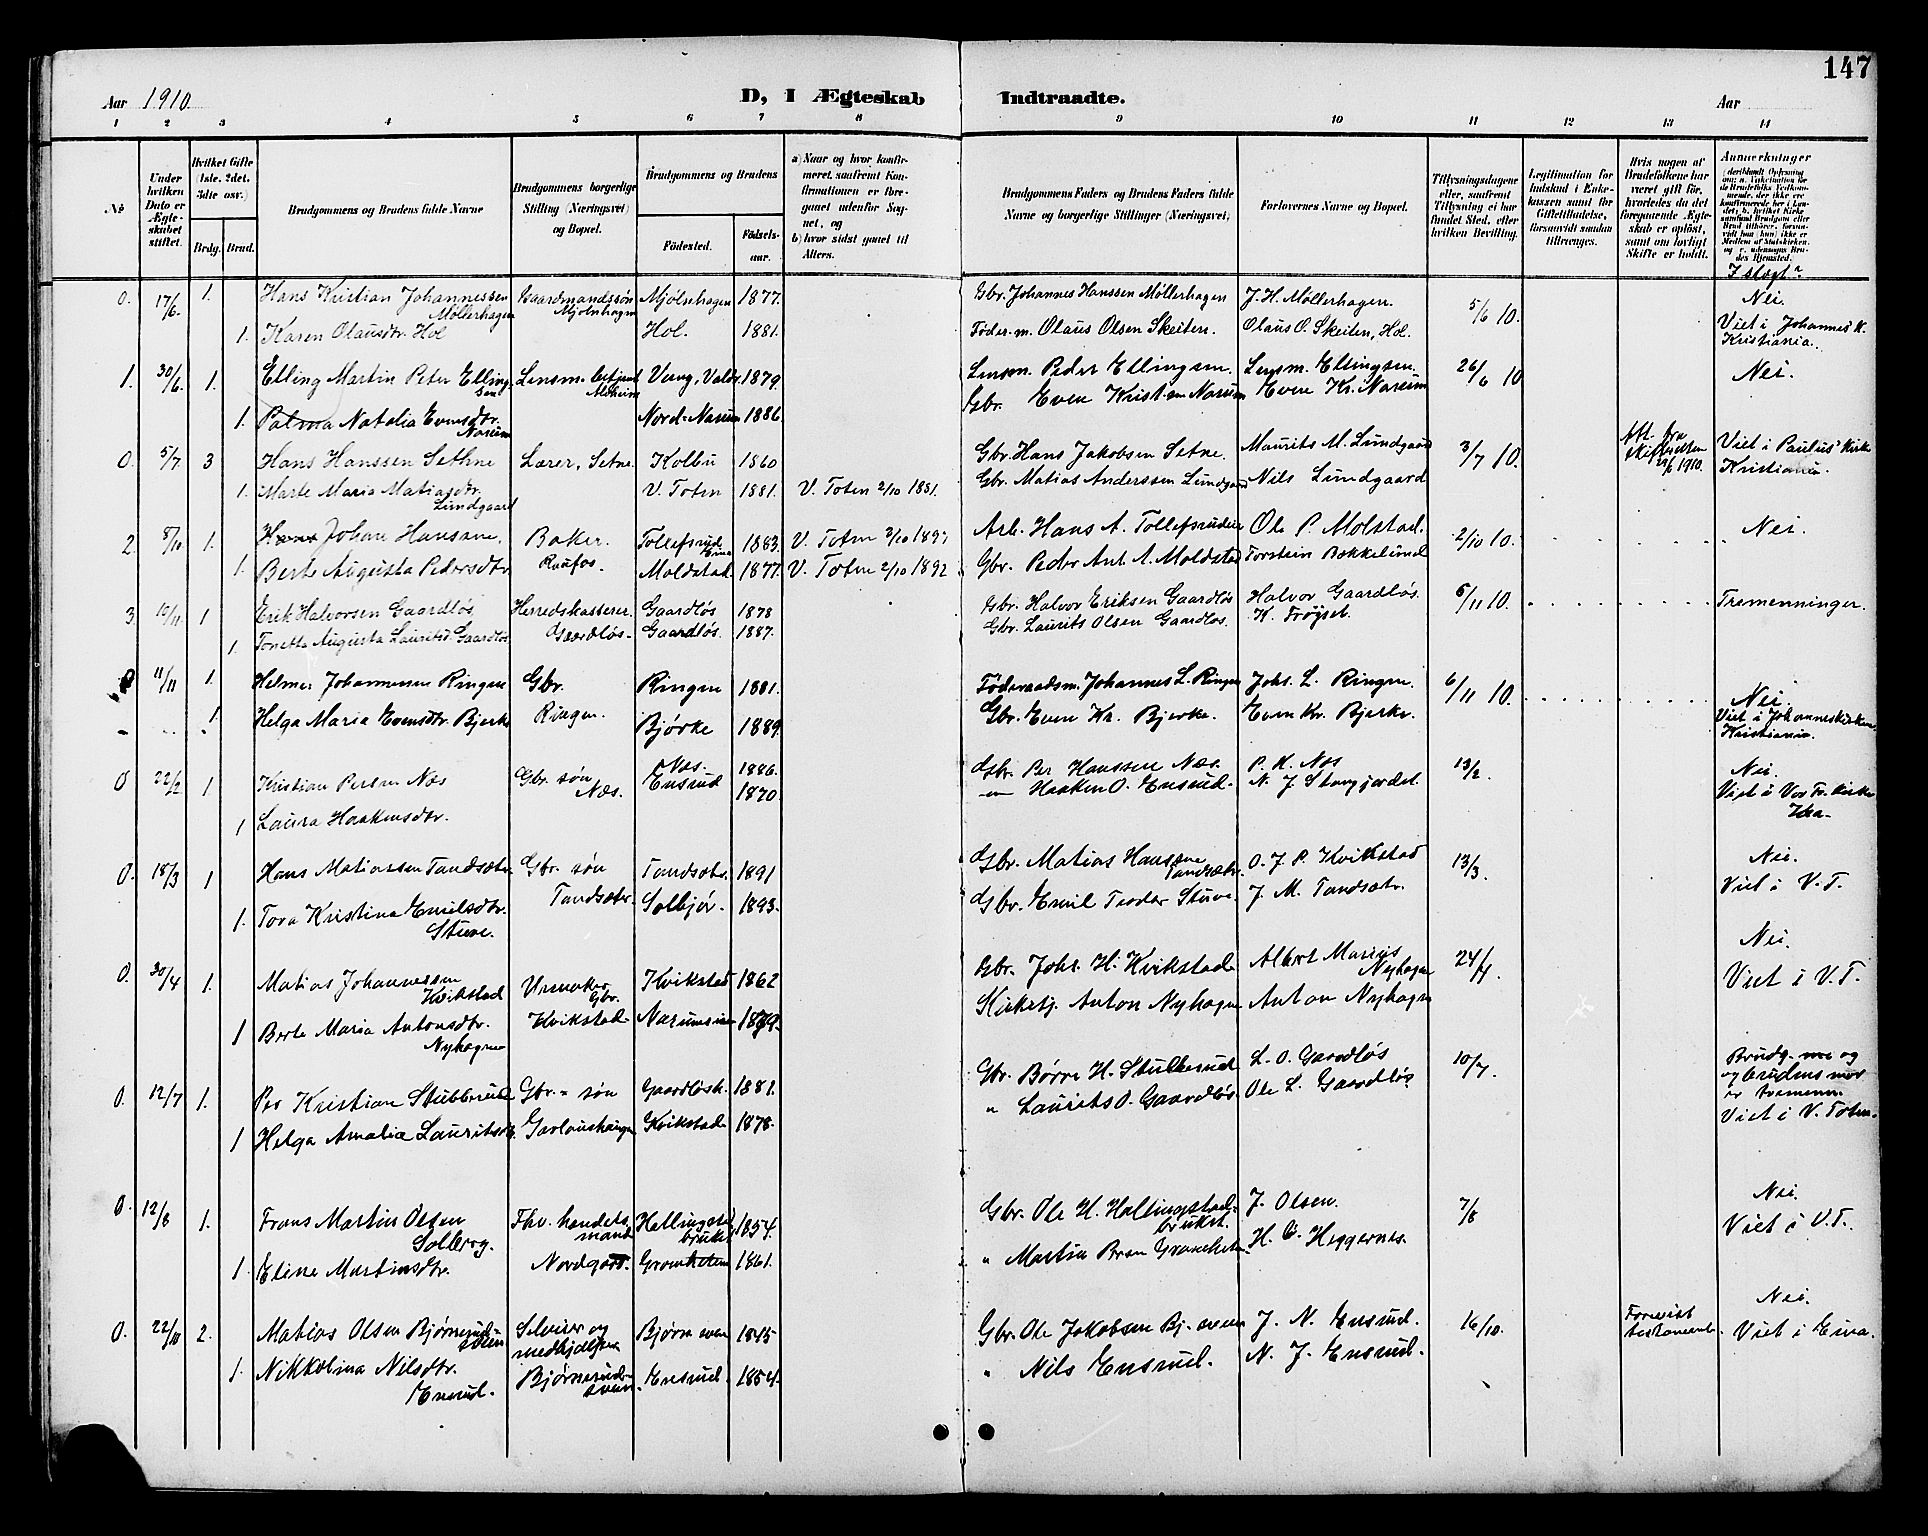 147
Aar 1910
D, I Ægteskab Indtraadte.
Aar
1 2 3 4 5 6 7 8 9 10 11 12 13 14
No
Under hvilken Dato er Ægteskabet stiftet.
Hvilket Gifte (1ste, 2det, 3dte osv.)
Brdg. Brud.
Brudgommens og Brudens fulde Navne
Brudgommens borgerlige Stilling (Næringsvei) og Bopæl.
Brudgommens og Brudens
Fødested. Fødselsaar.
a) Naar og hvor konfirmeret, saafremt Konfirmationen er foregaaet udenfor Sognet, og
b) hvor sidst gaaet til Alters.
Brudgommens Faders og Brudens Faders fulde Navne og borgerlige Stillinger (Næringsvei)
Forlovernes Navne og Bopæl.
Tillysningsdagene eller, saafremt Tillysning ei har fundet Sted, efter hvilken Bevilling.
Legitimation for Indskud i Enkekassen samt for Giftetilladelse, forsaavidt saadan tiltrænges.
Hvis nogen af Brudefolkene har været gift før, hvorledes da det foregaaende Ægteskab er opløst, samt om lovligt Skifte er holdt.
Anmerkninger
I slægt?
0. 17/6. 1. Hans Kristian Johannessen Møllerhagen Gaardmandssøn Mjølnhagen Mjølnhagen 1877. Gbr. Johannes Hanssen Møllerhagen J. H. Møllerhagen. 5/6 10. Nei.
1. Karen Olausdtr. Hol Hol. 1881. Føder.m. Olaus Olsen Skeiten. Olaus O. Skeiten, Hol. Viet i Johannes K. Kristiania.
1. 30/6. 1. Elling Martin Peter Ellingsen Lensm. betjent Vang, Valdr. 1879. Lensm. Peder Ellingsen. Lensm. Ellingsen. 26/6 10 Nei.
1. Palma Natalia Evensdtr. Narum Nord-Narum 1886. Gbr. Even Kristensen Narum Even Kr. Narum
0. 5/7. 3 Hans Hanssen Sethne Lærer, Setne. Kolbu 1860 Gbr. Hans Jakobsen Setne. Maurits M. Lundgaard 3/7 10. Att. fra skifteretten 1910. Viet i Paulus' Kirke
1. Marte Maria Matiasdtr. Lundgaard V. Toten 1881. V. Toten 2/10 1881. Gbr. Matias Anderssen Lundgaard Nils Lundgaard Kristiania.
2. 8/10 1. Hans Johan Hanssen. Baker. Tollefsrud Eina 1883. V. Toten 2/10 1897 Arb. Hans A. Tollefsrudeie Ole P. Molstad. 2/10 10. Nei.
1. Berte Augusta Pedersdtr. Raufos. Moldstad. 1877. V. Toten 2/10 1892 Gbr. Peder Ant. A. Moldstad Torstein Bækkelund
3. 10/11. 1 Erik Halvorsen Gaardløs Herredskasserer. Gaardløs 1878 Gbr. Halvor Eriksen Gaardløs Halvor Gaardløs. 6/11 10. Tremenninger.
1. Tonetta Augusta Lauritsd. Gaardløs Gaardløs. Gaardløs. 1887. Gbr. Laurits Olsen Gaardløs. K. Frøyset.
11/11 1. Helmer Johannessen Ringen Gbr. Ringen 1881. Føderaadsm. Johannes L. Ringen Johs. L. Ringen. 6/11 10. Nei.
1. Helga Maria Evensdtr. Bjerke Ringen. Bjørke 1889. Gbr. Even Kr. Bjerke. Even Kr. Bjerke. Viet i Johanneskirken Kristiania.
0 22/2 1 Kristian Persen Næs Gbr. søn Næs. Næs. 1886. Gbr. Per Hanssen Næs. P. H. Næs 13/2. Nei.
1 Laura Haakensdtr. Ensrud 1870. Haaken O. Ensrud. Viet i Vor Fr. Kirke Kra-
0. 18/3 1 Hans Matiassen Tandsætr Gbr. søn Tandsætr. Tandsætr. 1891 Gbr. Matias Hanssen Tandsætr. O. J. P. Kvikstad 13/3. Nei.
1. Tora Kristine Emilsdtr. Stuve. Solbjør. 1893. Gbr. Emil Teodor Stuve. J. M. Tandsætr. Viet i V. T.
0. 30/4 1. Matias Johannessen Kvikstad Urmaker Gbr. Kvikstad Kvikstad 1862 Gbr. Johs. H. Kvikstad. Albert Marius Nyhagen 24/4. Nei.
1 Berte Maria Antonsdtr. Nyhagen 1879. Kirketj. Anton Nyhagen Anton Nyhagen Viet i V. T.
0. 12/7 1. Per Kristian Stubberud Gbr. søn Gaardløsh. 1881. Gbr. Børre H. Stubberud L. O. Gaardløs 10/7. Brudg. og og brudens mor er tremenn.
1 Helga Amalie Lauritsdtr. Kvikstad 1878. " Laurits O. Gaardløs. Ole L. Gaardløs Viet i V. Toten.
0. 12/8 1. Frans Martin Olsen Solberg. Fhv. handelsmand Hallingstadbruket 1854. Gbr. Ole H. Hallingstadbruket. J. Olsen. 7/8 Nei.
1. Eline Martinsdtr. Nordgard. 1861. " H. O. Heggernes. Viet i V. T.
0. 22/10 2. Matias Olsen Bjørnerudsveen Selveier og medhjelper Bjørnerudsveen Bjørn sveen 1845 Gbr. Ole Jakobsen Bj. sveen J. N. Ensrud. 16/10. Forevist testament. Nei.
1. Nikkoline Nilsdtr. Ensrud. Ensrud. 1854. " Nils Ensrud. N. J. Ensrud. Viet i Eina.